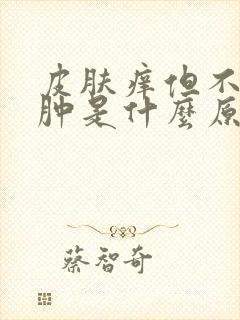 皮肤痒但不
肿是什麼原
蔡智奇